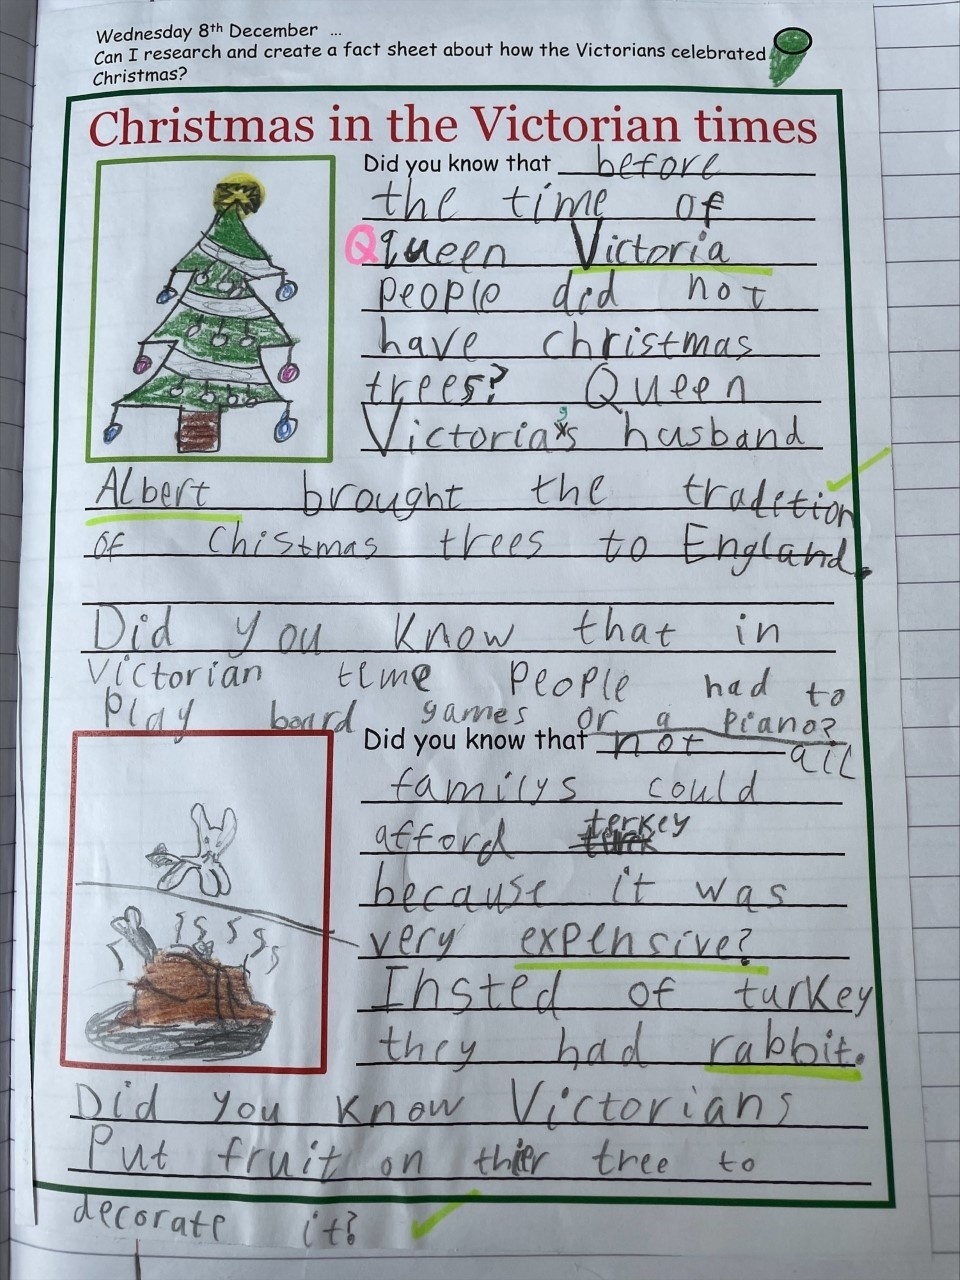 Wednesday 8th December ...
Can I research and create a fact sheet about how the Victorians celebrated
Christmas?
Christmas in the Victorian times
Did you know that before
the time of
Qqueen Victoria
people did not
have christmas
trees? Queen
Victoria's husband
Albert brought the tradetion
of Chistmas trees to England.
Did you know that in
Victorian time people had to
Play board games or a Piano?
Did you know that not all
familys could
afford terkey
because it was
very expensive?
Insted of turkey
they had rabbit.
Did you know Victorians
Put fruit on thier tree to
decorate it?